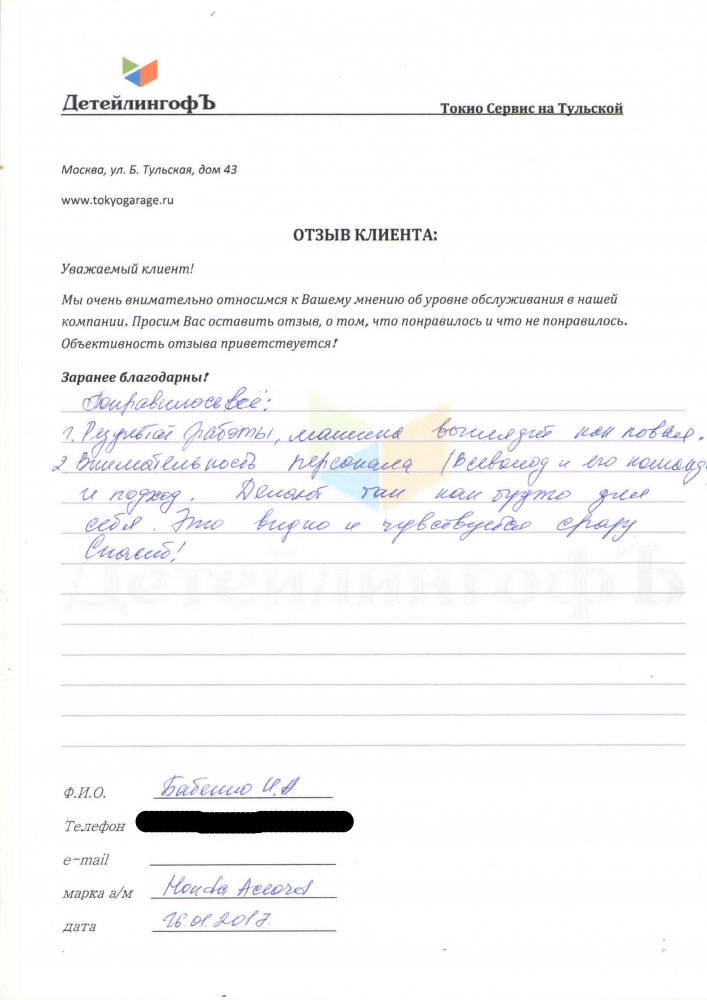 ДетейлингофЪ
Токио Сервис на Тульской
Москва, ул. Б. Тульская, дом 43
www.tokyogarage.ru
ОТЗЫВ КЛИЕНТА:
Уважаемый клиент!
Мы очень внимательно относимся к Вашему мнению об уровне обслуживания в нашей
компании. Просим Вас оставить отзыв, о том, что понравилось и что не понравилось.
Объективность отзыва приветствуется!
Заранее благодарны!
Понравилось всё:
1. Результат работы, машина выглядит как новая.
2. Внимательность персонала (Всеволод и его команд
и подход. Делают так как будто для
себя. Это видно и чувствуется сразу
Спасиб!
ДетейлингофЪ
Ф.И.О. Бабенко И.А
Телефон
e-mail
марка а/м Honda Accord
дата 16.01.2017.